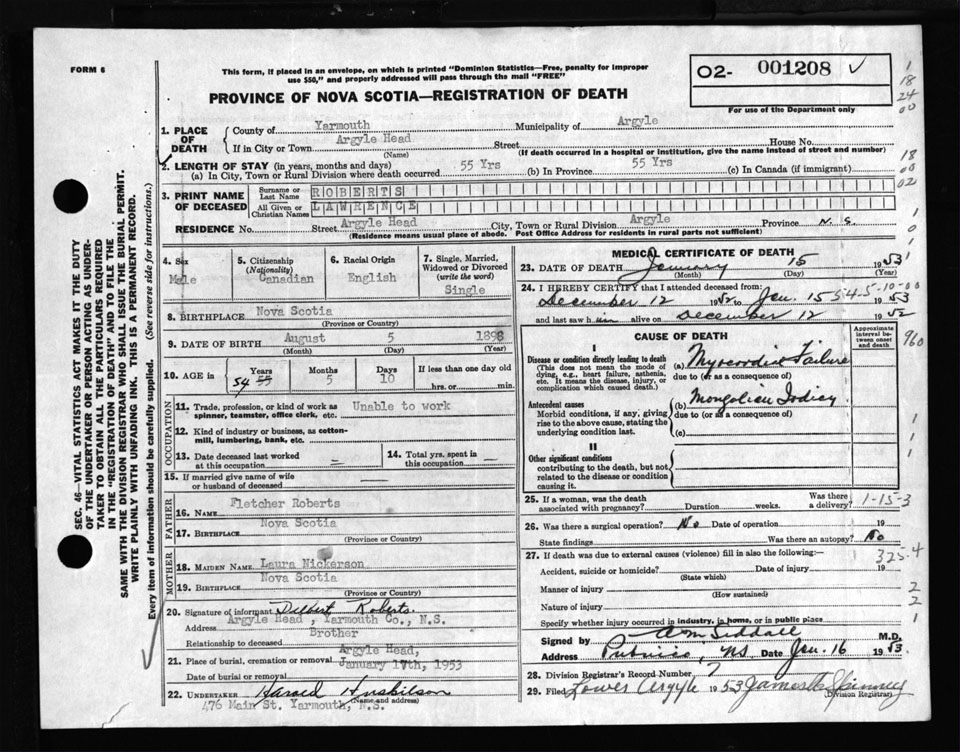 FORM 6
This form, if placed in an envelope, on which is printed "Dominion Statistics—Free, penalty for improper
use $50," and properly addressed will pass through the mail "FREE"
O2- 001208
For use of the Department only
PROVINCE OF NOVA SCOTIA—REGISTRATION OF DEATH
SEC. 46—VITAL STATISTICS ACT MAKES IT THE DUTY
OF THE UNDERTAKER OR PERSON ACTING AS UNDER-
TAKER TO OBTAIN ALL THE PARTICULARS REQUIRED
IN THE "REGISTRATION OF DEATH" AND TO FILE THE
SAME WITH THE DIVISION REGISTRAR WHO SHALL ISSUE THE BURIAL PERMIT.
WRITE PLAINLY WITH UNFADING INK. THIS IS A PERMANENT RECORD.
Every item of information should be carefully supplied. (See reverse side for instructions.)
1. PLACE OF DEATH
County of Yarmouth Municipality of Argyle
If in City or Town Argyle Head Street House No.
(Name) (If death occurred in a hospital or institution, give the name instead of street and number)
2. LENGTH OF STAY (in years, months and days)
(a) In City, Town or Rural Division where death occurred 55 Yrs (b) In Province 55 Yrs (c) In Canada (if immigrant)
3. PRINT NAME OF DECEASED
Surname or Last Name ROBERTS
All Given or Christian Names LAWRENCE
RESIDENCE No. Street Argyle Head City, Town or Rural Division Argyle Province N. S.
(Residence means usual place of abode. Post Office Address for residents in rural parts not sufficient)
4. Sex Male
5. Citizenship (Nationality) Canadian
6. Racial Origin English
7. Single, Married, Widowed or Divorced (write the word) Single
8. BIRTHPLACE Nova Scotia
(Province or Country)
9. DATE OF BIRTH August 5 1898
(Month) (Day) (Year)
10. AGE in Years 54 55 Months 5 Days 10 If less than one day old hrs. or min.
OCCUPATION
11. Trade, profession, or kind of work as spinner, teamster, office clerk, etc. Unable to work
12. Kind of industry or business, as cotton-mill, lumbering, bank, etc.
13. Date deceased last worked at this occupation —
14. Total yrs. spent in this occupation —
15. If married give name of wife or husband of deceased
FATHER
16. NAME Fletcher Roberts
17. BIRTHPLACE Nova Scotia
(Province or Country)
MOTHER
18. MAIDEN NAME Laura Nickerson
19. BIRTHPLACE Nova Scotia
(Province or Country)
20. Signature of informant Delbert Roberts.
Address Argyle Head, Yarmouth Co., N.S.
Relationship to deceased Brother
21. Place of burial, cremation or removal Argyle Head,
Date of burial or removal January 17th, 1953
22. UNDERTAKER Harold
(Name and address)
476 Main St. Yarmouth, N.S.
MEDICAL CERTIFICATE OF DEATH
23. DATE OF DEATH January 15 1953
(Month) (Day) (Year)
24. I HEREBY CERTIFY that I attended deceased from:
December 12 1952 to Jan. 15 1953
and last saw him alive on December 12 1952
CAUSE OF DEATH
Approximate interval between onset and death
I
Disease or condition directly leading to death
(This does not mean the mode of dying, e.g., heart failure, asthenia, etc. It means the disease, injury, or complication which caused death.)
(a) Myocardial Failure
due to (or as a consequence of)
Antecedent causes
Morbid conditions, if any, giving rise to the above cause, stating the underlying condition last.
(b) Mongolian Idiocy
due to (or as a consequence of)
(c)
II
Other significant conditions
contributing to the death, but not related to the disease or condition causing it.
25. If a woman, was the death associated with pregnancy? Duration weeks. Was there a delivery?
1-15-3
26. Was there a surgical operation? No Date of operation 19
State findings Was there an autopsy? No
27. If death was due to external causes (violence) fill in also the following:—
325-4
Accident, suicide or homicide? Date of injury 19
(State which)
Manner of injury
(How sustained)
Nature of injury
Specify whether injury occurred in industry, in home, or in public place
Signed by A.M. Siddall M.D.
Address Pubnico, NS Date Jan. 16 1953.
28. Division Registrar's Record Number 7
29. Filed Lower Argyle 1953
(Division Registrar)